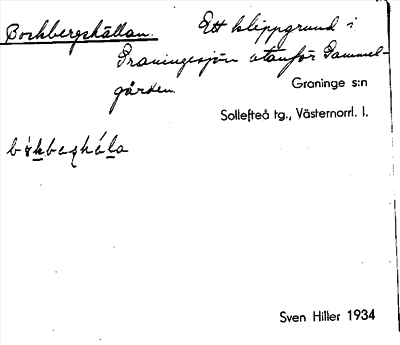 Bockbergskällan. Ett klippgrund i
Graningesjön utanför Gammel-
gården.
Graninge s:n
Sollefteå tg., Västernorrl. l.
Sven Hiller 1934